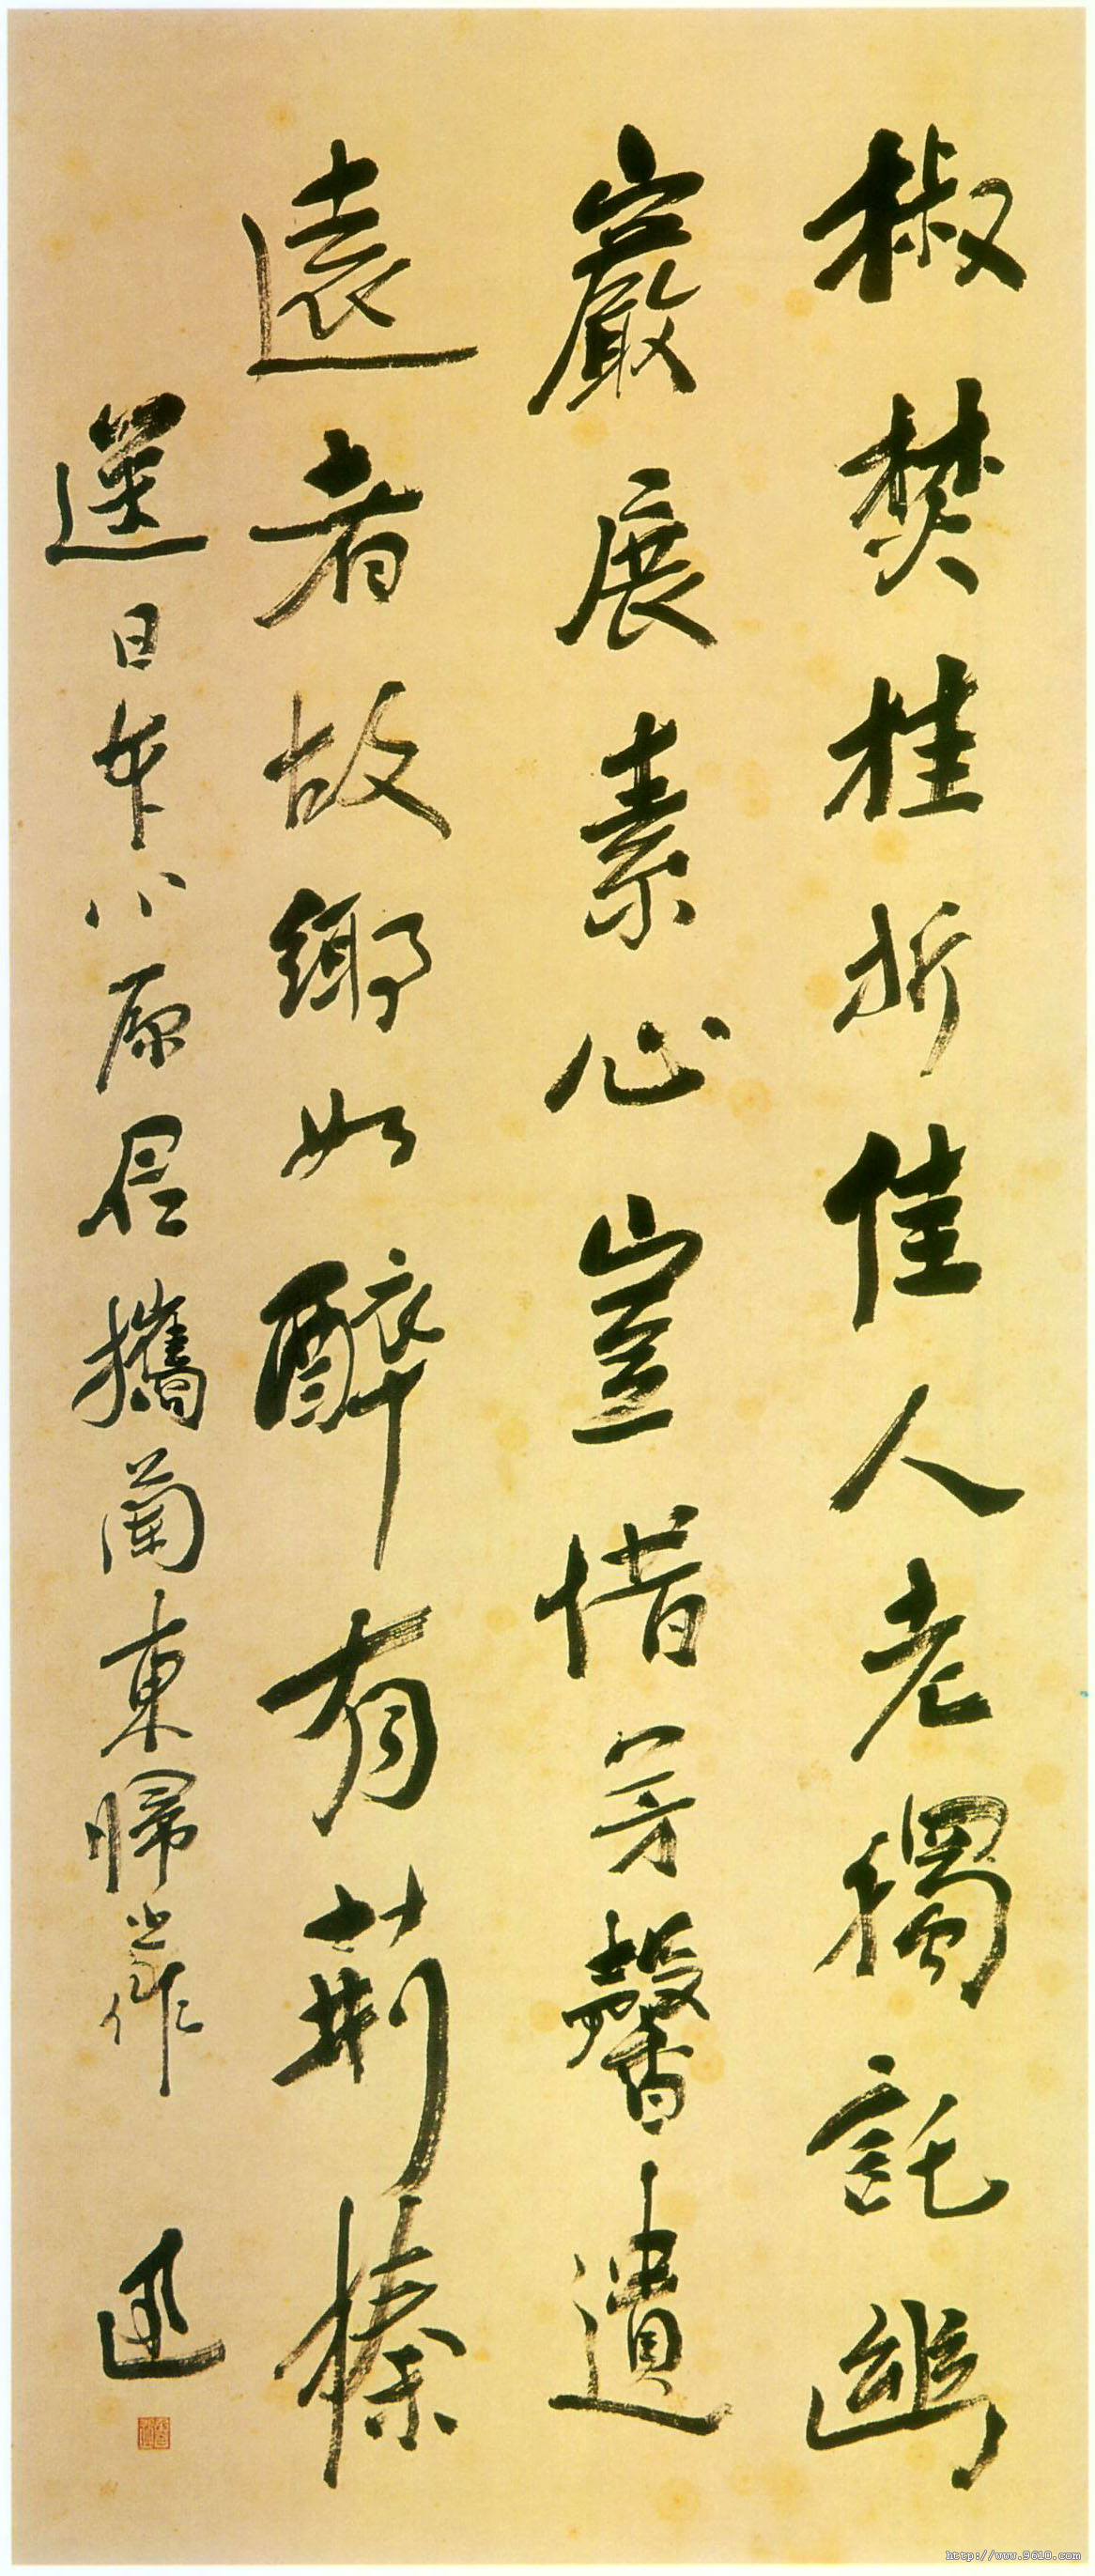 椒焚桂折佳人老獨託幽
巖展素心豈惜芳馨遺
遠者故鄉如醉有荊榛
送日本小原君攜蘭東歸之作
迅
http://www.9610.com